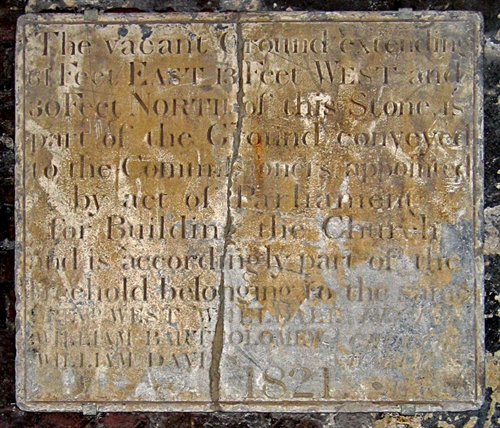 The vacant Ground extending
61 Feet EAST 13 Feet WEST and
30 Feet NORTH of this Stone, is
part of the Ground conveyed
to the Commissioners appointed
by act of Parliament
for Building the Church
and is accordingly part of the
freehold belonging to the same
WEST WHELDALE
WILLIAM BARTHOLOMEW
WILLIAM DAVI
1821